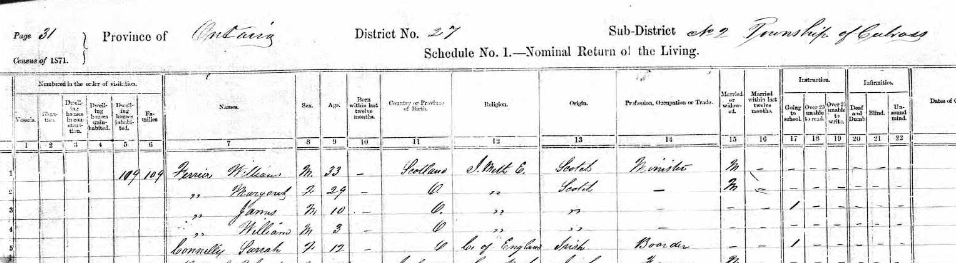 Page 31 Province of Ontario District No. 27 Sub-District No 2 Township of Culross
Census of 1871. Schedule No. 1.—Nominal Return of the Living.
Numbered in the order of visitation. Names. Sex. Age. Born within last twelve months. Country or Province of Birth. Religion. Origin. Profession, Occupation or Trade. Married or widowed. Married within last twelve months. Instruction. Infirmities. Dates of
Vessels. Dwelling houses in construction. Dwelling houses uninhabited. Dwelling houses inhabited. Families Going to school. Over 20 unable to read. Over 20 unable to write. Deaf and Dumb. Blind. Unsound mind.
1 2 3 4 5 6 7 8 9 10 11 12 13 14 15 16 17 18 19 20 21 22
1 109 109 Ferrier William M 33 – Scotland Scotch Minister M – – – – – – –
2 „ Margaret F 29 – O. „ Scotch – M – – – – – –
3 „ James M 10 – O. „ „ – – – 1 – – – – –
4 „ William M 3 – O „ „ – – – – – – – – –
5 Connelly Sarah F 12 – O C. of England Irish Boarder – – 1 – – – – –